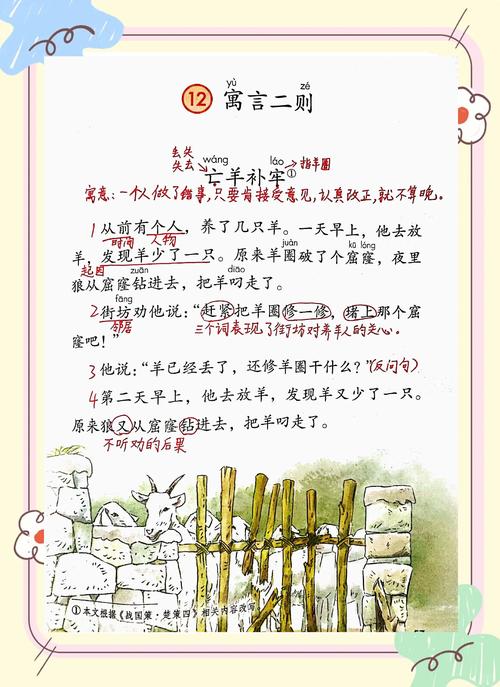 yù zé
12 寓言二则
丢失
失去 wáng láo 指羊圈
亡羊补牢①
寓意:一个人做了错事,只要肯接受意见,认真改正,就不算晚。
1 从前有个人,养了几只羊。一天早上,他去放
时间 人物
juàn kū lóng
羊,发现羊少了一只。原来羊圈破了个窟窿,夜里
起因 zuān diāo
狼从窟窿钻进去,把羊叼走了。
fāng
2 街坊劝他说:“赶紧把羊圈修一修,堵上那个窟
邻居 三个词表现了街坊对养羊人的关心。
窿吧!”
3 他说:“羊已经丢了,还修羊圈干什么?”(反问句)
4 第二天早上,他去放羊,发现羊又少了一只。
原来狼又从窟窿钻进去,把羊叼走了。
不听劝的后果
①本文根据《战国策·楚策四》相关内容改写